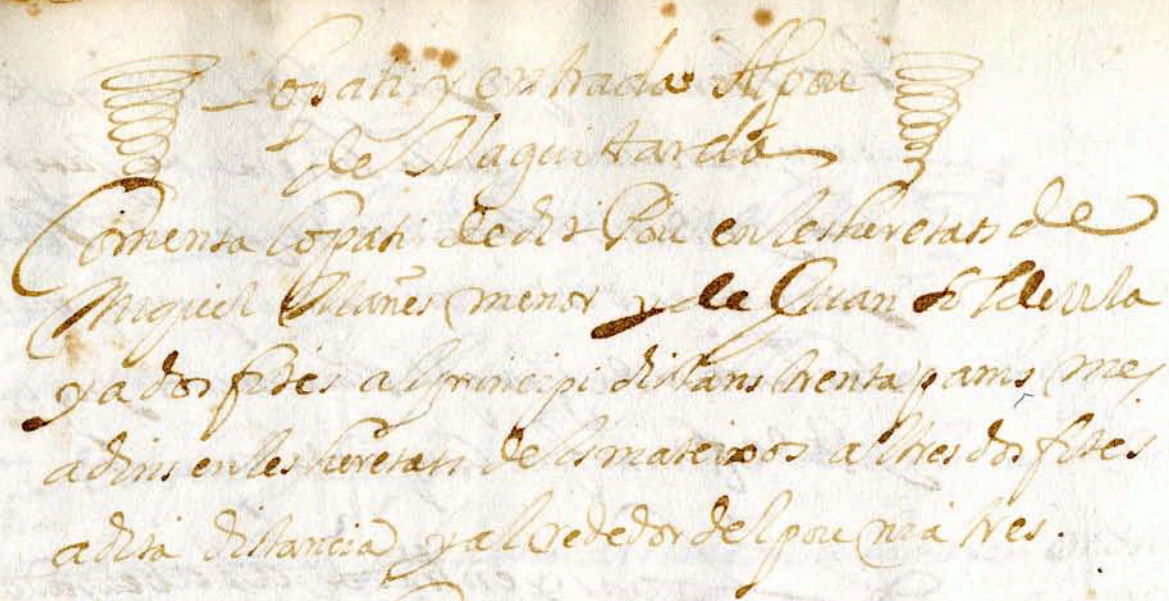 Lopati y entrada Al pou
de Alaguitarda
Comensa lopati de dit Pou en les heretats de
Miguel Mañes menor y de Juan
y a dos fites al principi distans trenta pams mes
adins en les heretats dels mateixos altres dos fites
a dita distancia y al rededor del pou nia tres.